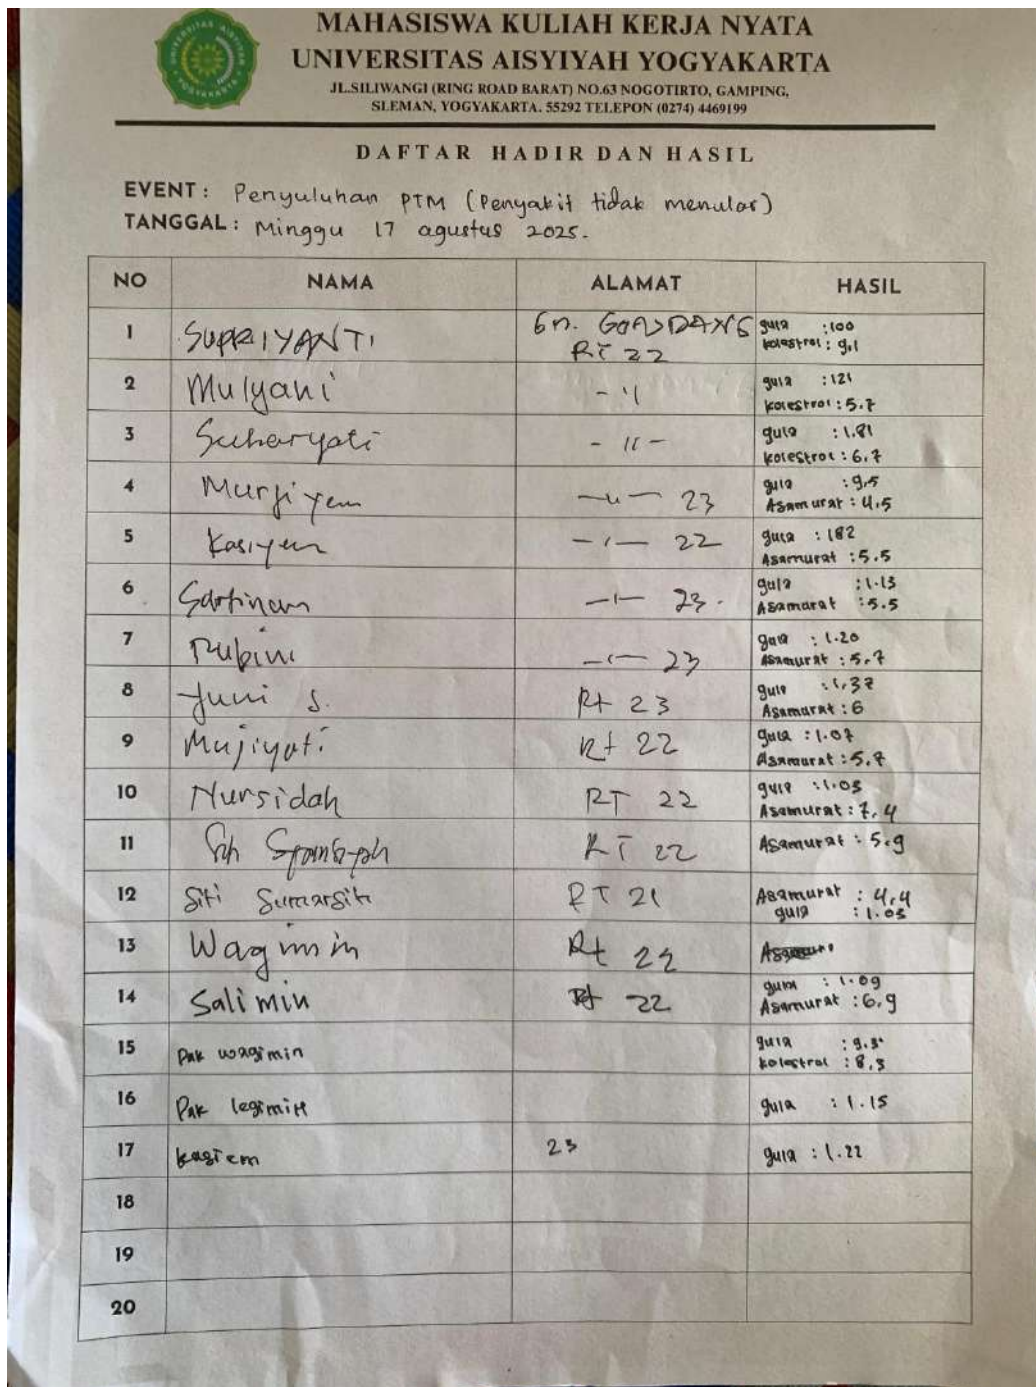 MAHASISWA KULIAH KERJA NYATA
UNIVERSITAS AISYIYAH YOGYAKARTA
JL.SILIWANGI (RING ROAD BARAT) NO.63 NOGOTIRTO, GAMPING,
SLEMAN, YOGYAKARTA. 55292 TELEPON (0274) 4469199
DAFTAR HADIR DAN HASIL
EVENT : Penyuluhan PTM (Penyakit tidak menular)
TANGGAL : Minggu 17 agustus 2025.
NO NAMA ALAMAT HASIL
1 SUPRIYANTI Gn. GONDANG RT 22 gula : 100
kolestrol : 9,1
2 Mulyani - 11 gula : 121
kolestrol : 5.7
3 Suharyati - 11 - gula : 1.81
kolestrol : 6.7
4 Murjiyem — 11 — 23 gula : 9,5
Asamurat : 4,5
5 Kasiyem — 1 — 22 gula : 182
Asamurat : 5.5
6 Sartinem — 1 — 23. gula : 1.13
Asamurat : 5.5
7 Rubini — 1 — 23 gula : 1.20
Asamurat : 5.7
8 Juni S. Rt 23 gula : 1,37
Asamurat : 6
9 Mujiyati Rt 22 gula : 1.07
Asamurat : 5.7
10 Nursidah RT 22 gula : 1.03
Asamurat : 7,4
11 RT 22 Asamurat : 5.9
12 Siti Sumarsih RT 21 Asamurat : 4,4
gula : 1.03
13 Wagimin Rt 22
14 Salimin Rt 22 gula : 1.09
Asamurat : 6,9
15 Pak wagimin gula : 9.3
kolestrol : 8,3
16 Pak legimin gula : 1.15
17 kasiem 23 gula : 1.22
18
19
20